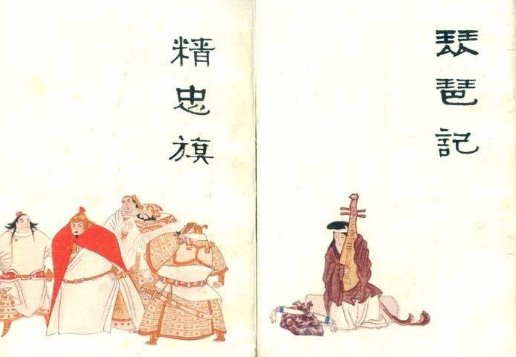 琵琶記
精忠旗